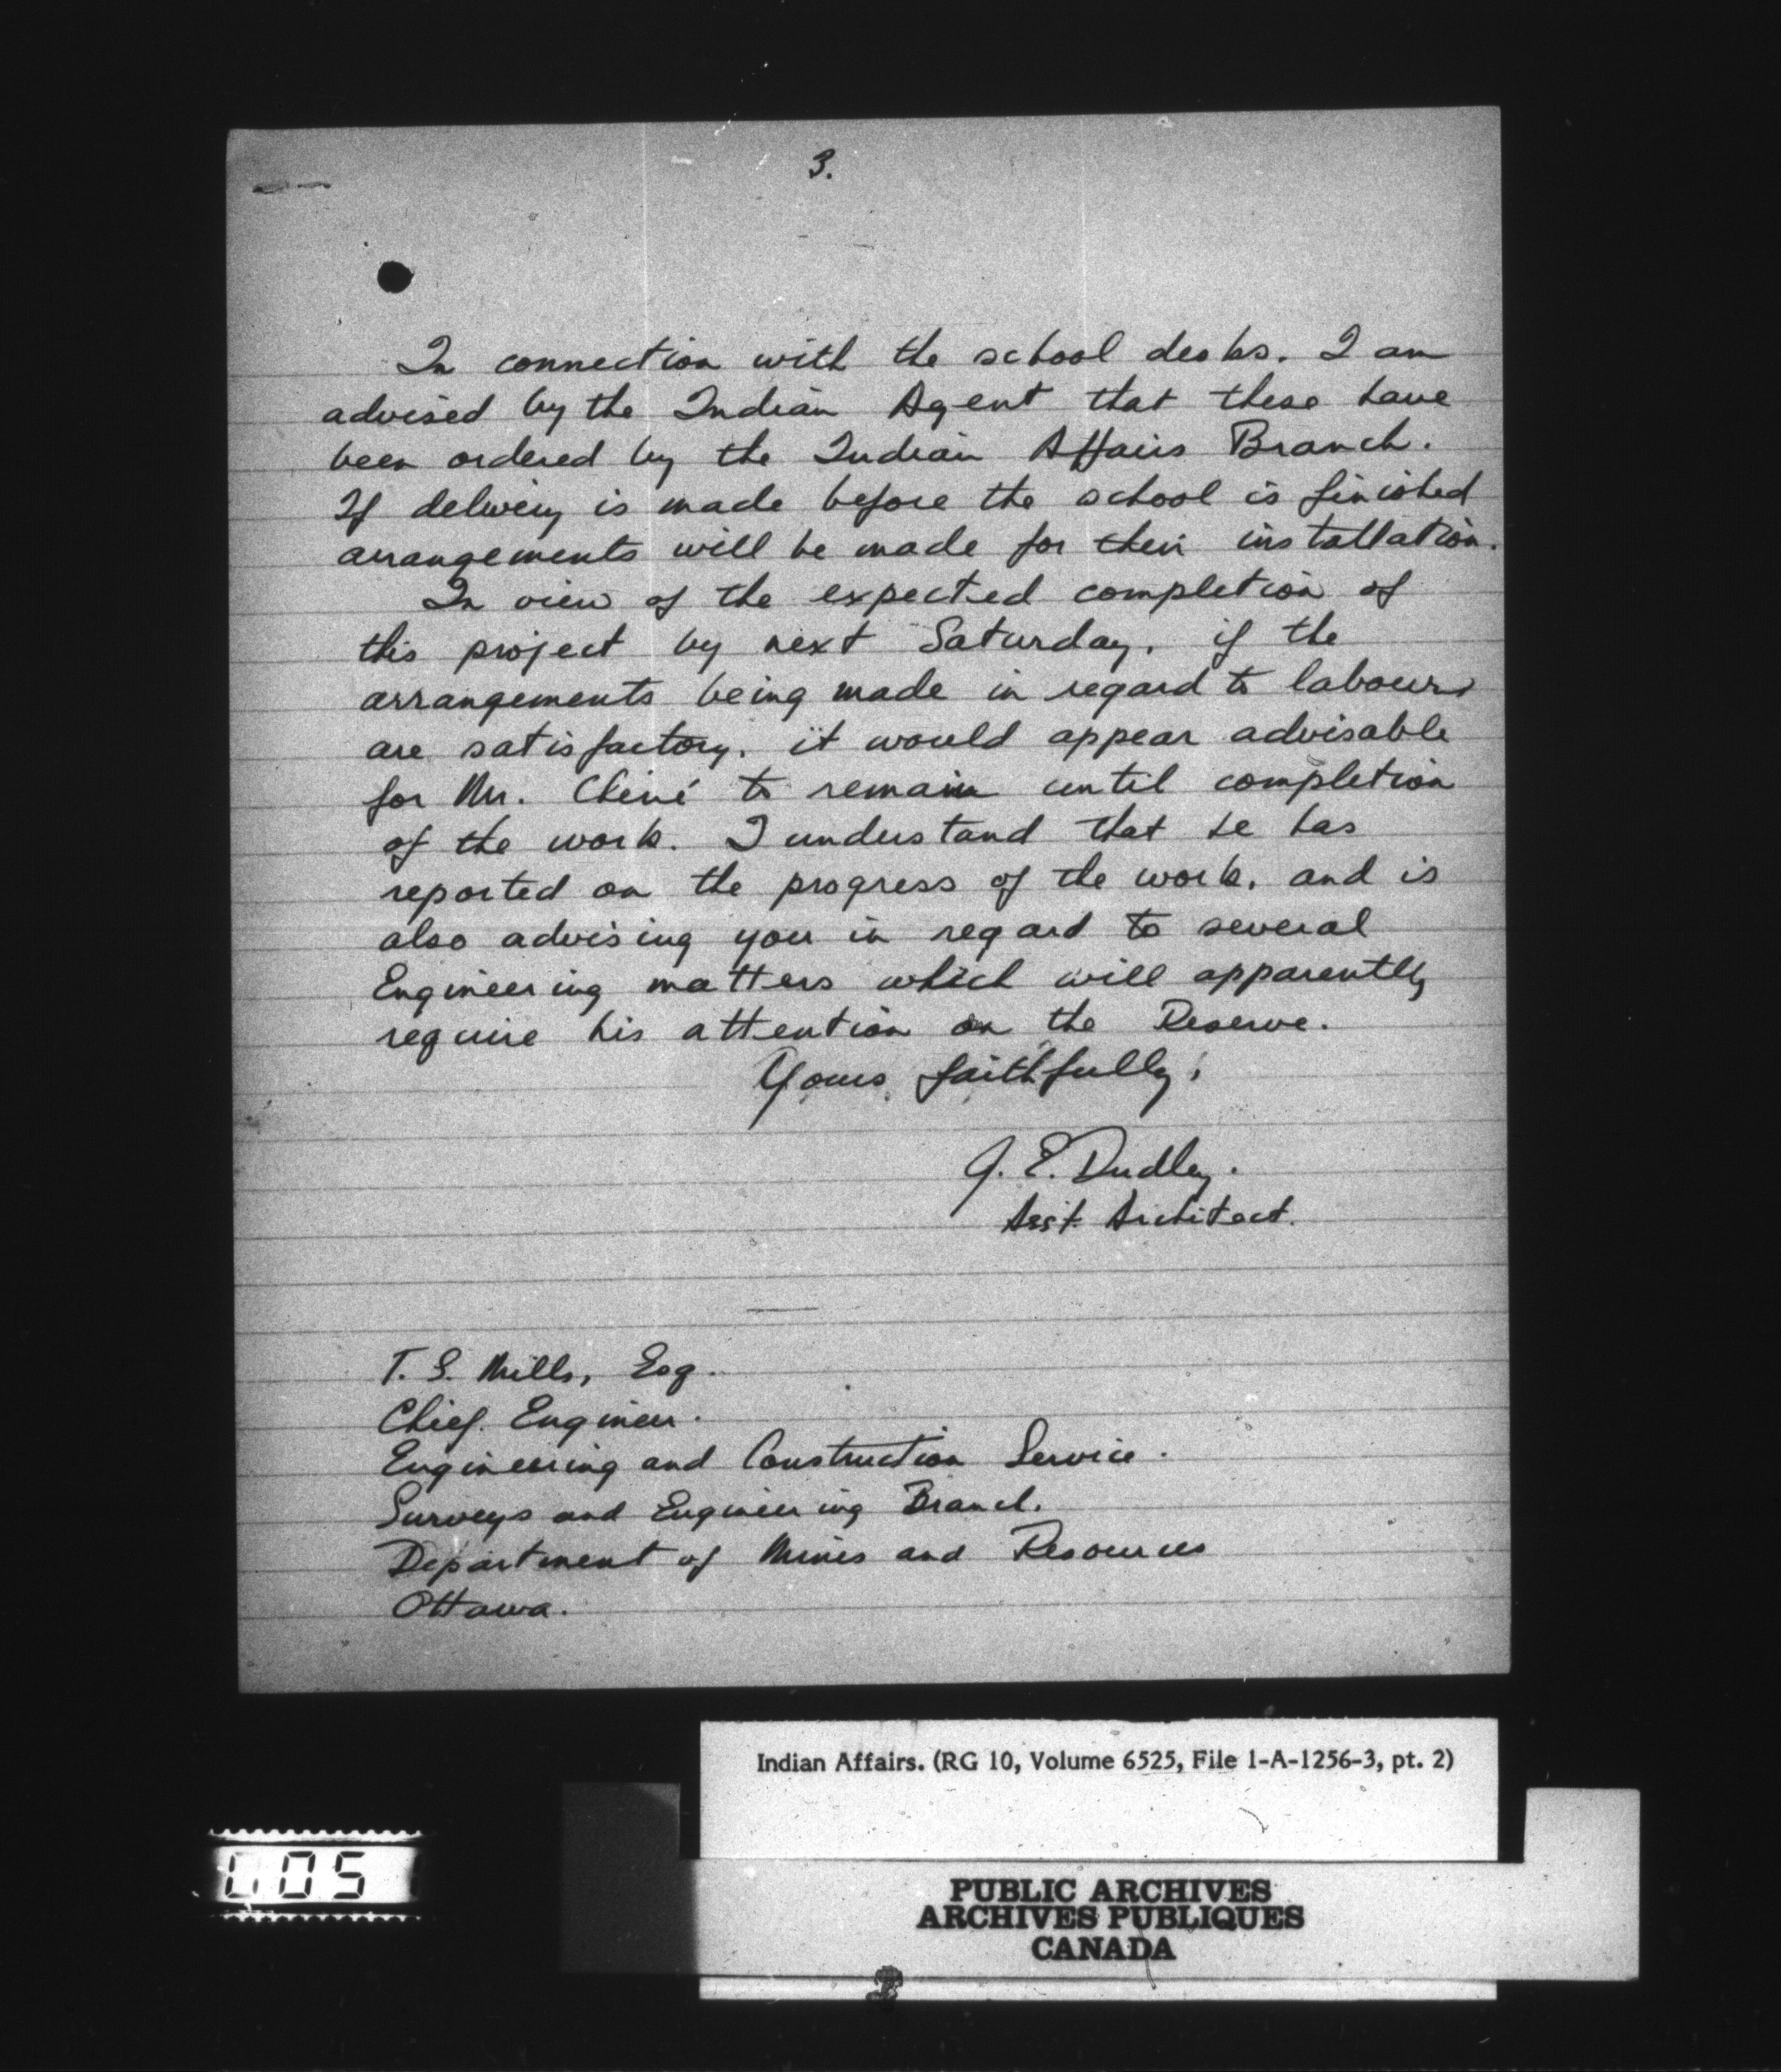 3.
In connection with the school desks. I am
advised by the Indian Agent that these have
been ordered by the Indian Affairs Branch.
If delivery is made before the school is finished
arrangements will be made for their installation.
In view of the expected completion of
this project by next Saturday, if the
arrangements being made in regard to labours
are satisfactory, it would appear advisable
for Mr. Chené to remain until completion
of the work. I understand that he has
reported on the progress of the work, and is
also advising you in regard to several
Engineering matters which will apparently
require his attention on the Reserve.
Yours faithfully,
G. E. Dudley.
Asst. Architect.
T. S. Mills, Esq.
Chief Engineer.
Engineering and Construction Service.
Surveys and Engineering Branch.
Department of Mines and Resources
Ottawa.
Indian Affairs. (RG 10, Volume 6525, File 1-A-1256-3, pt. 2)
PUBLIC ARCHIVES
ARCHIVES PUBLIQUES
CANADA